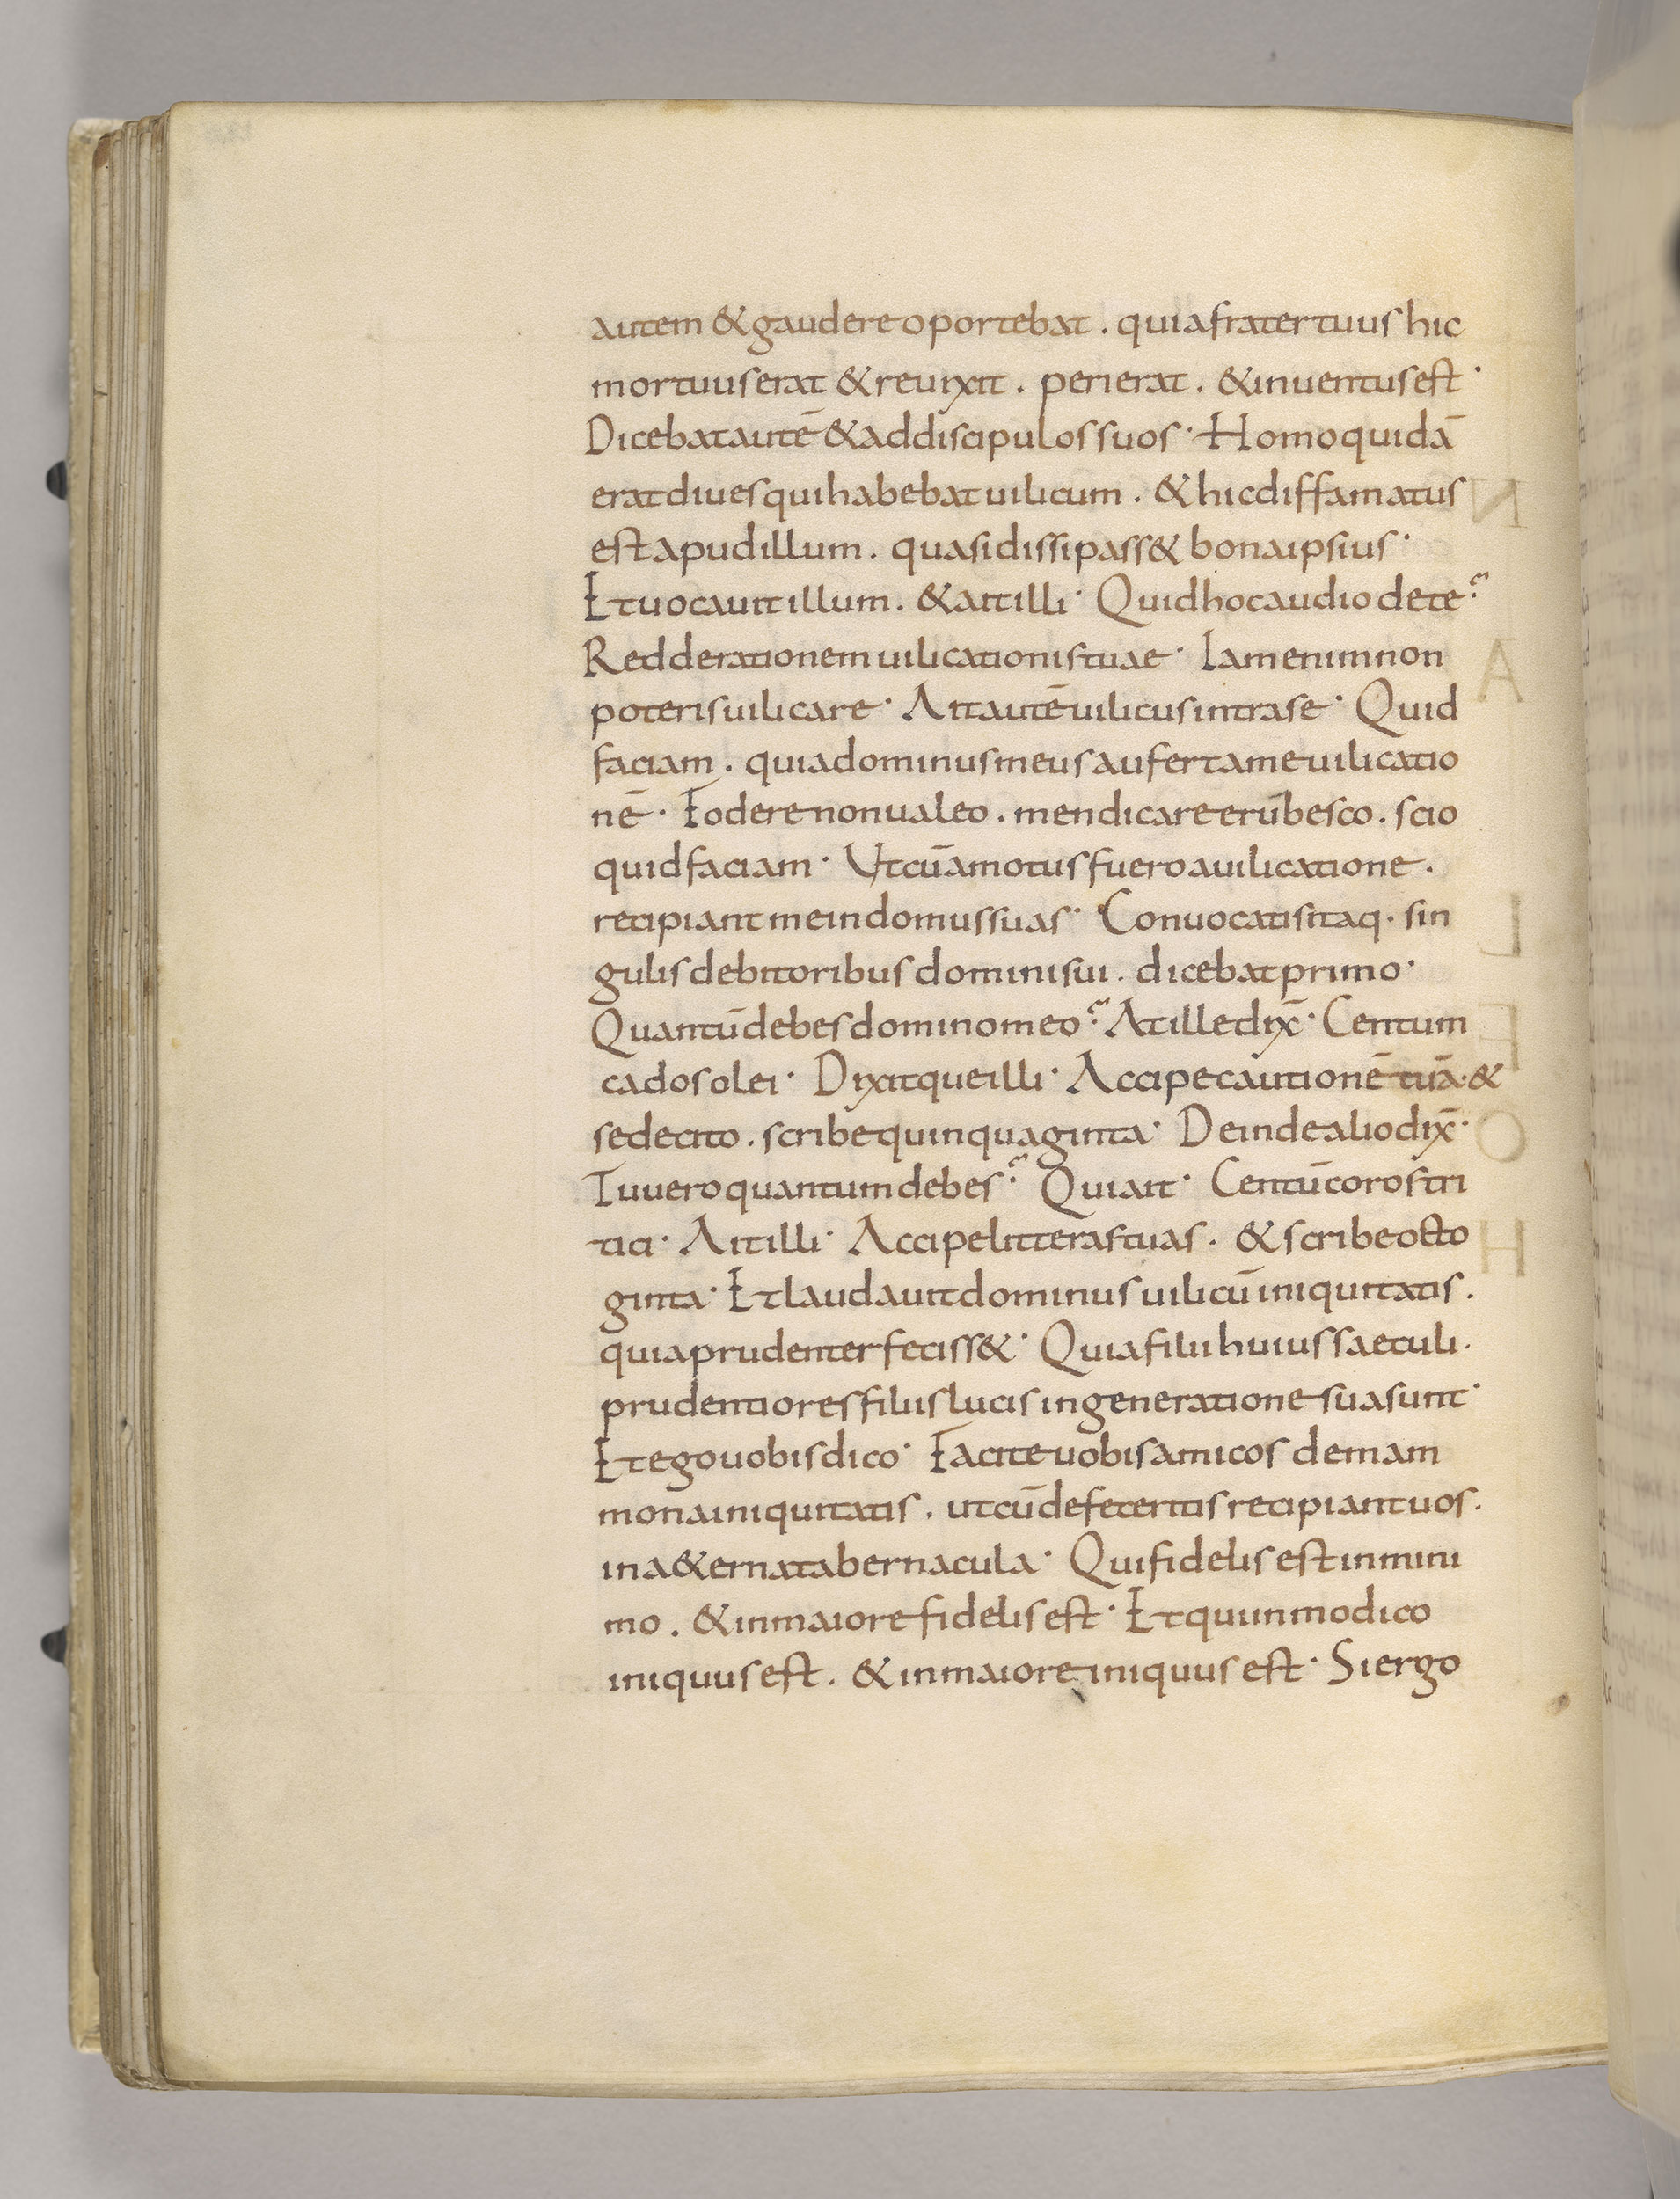 autem & gaudere oportebat . quia frater tuus hic
mortuus erat & reuixit . perierat . & inuentus est·
Dicebat autē & ad discipulos suos· Homo quidā
erat diues qui habebat uilicum . & hic diffamatus
est apud illum . quasi dissipass& bona ipsius·
Et uocauit illum . & ait illi· Quid hoc audio de te?
Redde rationem uilicationis tuae· Iam enim non
poteris uilicare· Ait autē uilicus intra se· Quid
faciam . quia dominus meus aufert a me uilicatio
nē· Fodere non ualeo . mendicare erubesco . scio
quid faciam· Ut cū amotus fuero a uilicatione .
recipiant me in domus suas· Conuocatis itaq· sin
gulis debitoribus domini sui . dicebat primo·
Quantū debes domino meo? At ille dix̄· Centum
cados olei· Dixitque illi· Accipe cautionē tuā· &
sede cito . scribe quinquaginta· Deinde alio dix̄·
Tu uero quantum debes? Qui ait· Centū coros tri
tici· Ait illi· Accipe litteras tuas . & scribe octo
ginta· Et laudauit dominus uilicū iniquitatis .
quia prudenter feciss&· Quia filii huius saeculi .
prudentiores filiis lucis in generatione sua sunt·
Et ego uobis dico· Facite uobis amicos de mam
mona iniquitatis . ut cū defeceritis recipiant uos .
in a&erna tabernacula· Qui fidelis est in mini
mo . & in maiore fidelis est· Et qui in modico
iniquus est . & in maiore iniquus est· Si ergo